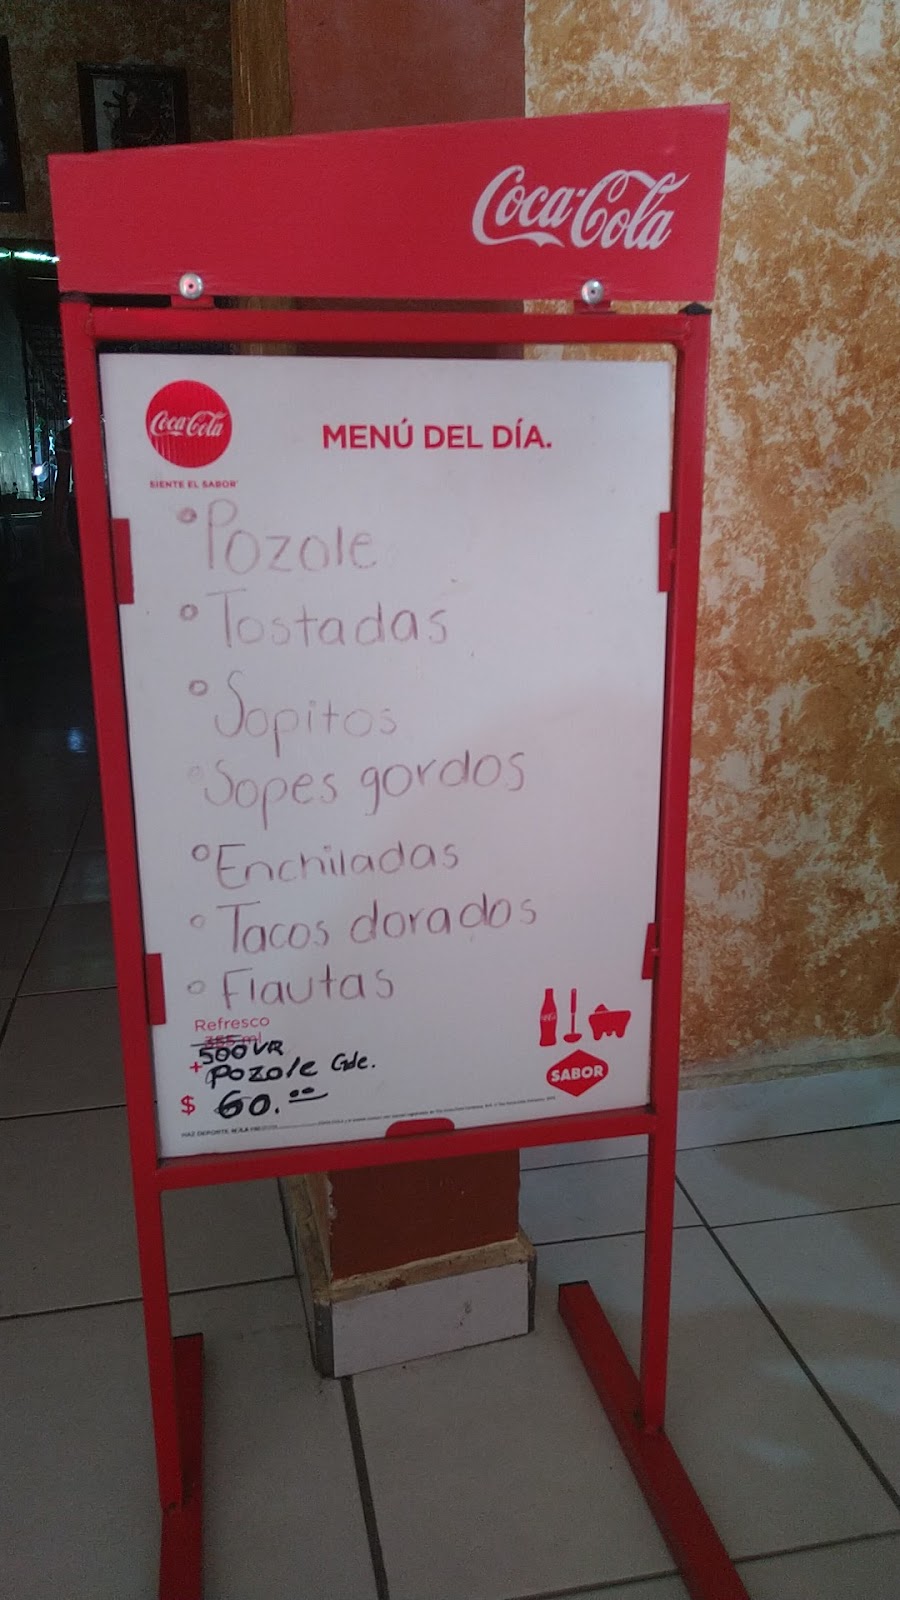 Coca-Cola
Coca-Cola
SIENTE EL SABOR
MENÚ DEL DÍA.
Pozole
Tostadas
Sopitos
Sopes gordos
Enchiladas
Tacos dorados
Flautas
Refresco
355 ml
500 VR
+ Pozole Gde.
$ 60.00
SABOR
HAZ DEPORTE.